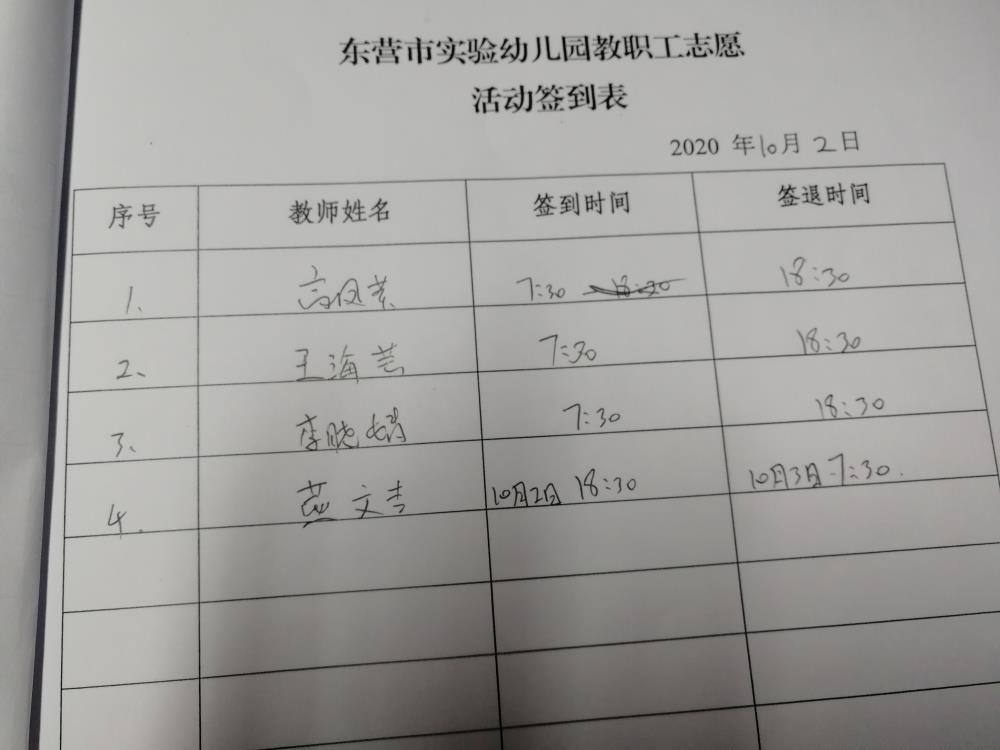 东营市实验幼儿园教职工志愿
活动签到表
2020 年10月2日
序号 教师姓名 签到时间 签退时间
1、 高凤芸 7:30 18:30 18:30
2、 王海芸 7:30 18:30
3、 李晓娟 7:30 18:30
4、 燕文吉 10月2日 18:30 10月3日 7:30.